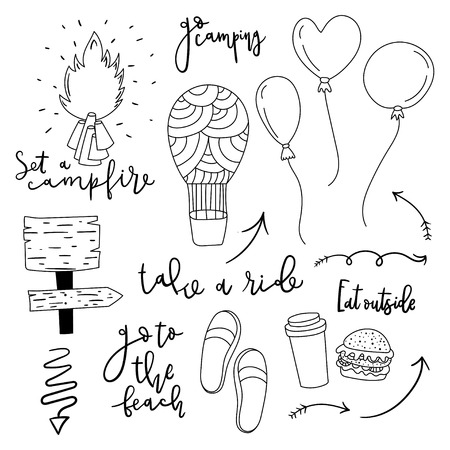 go
camping
Set a
campfire
take a ride
Eat outside
go to
the
beach